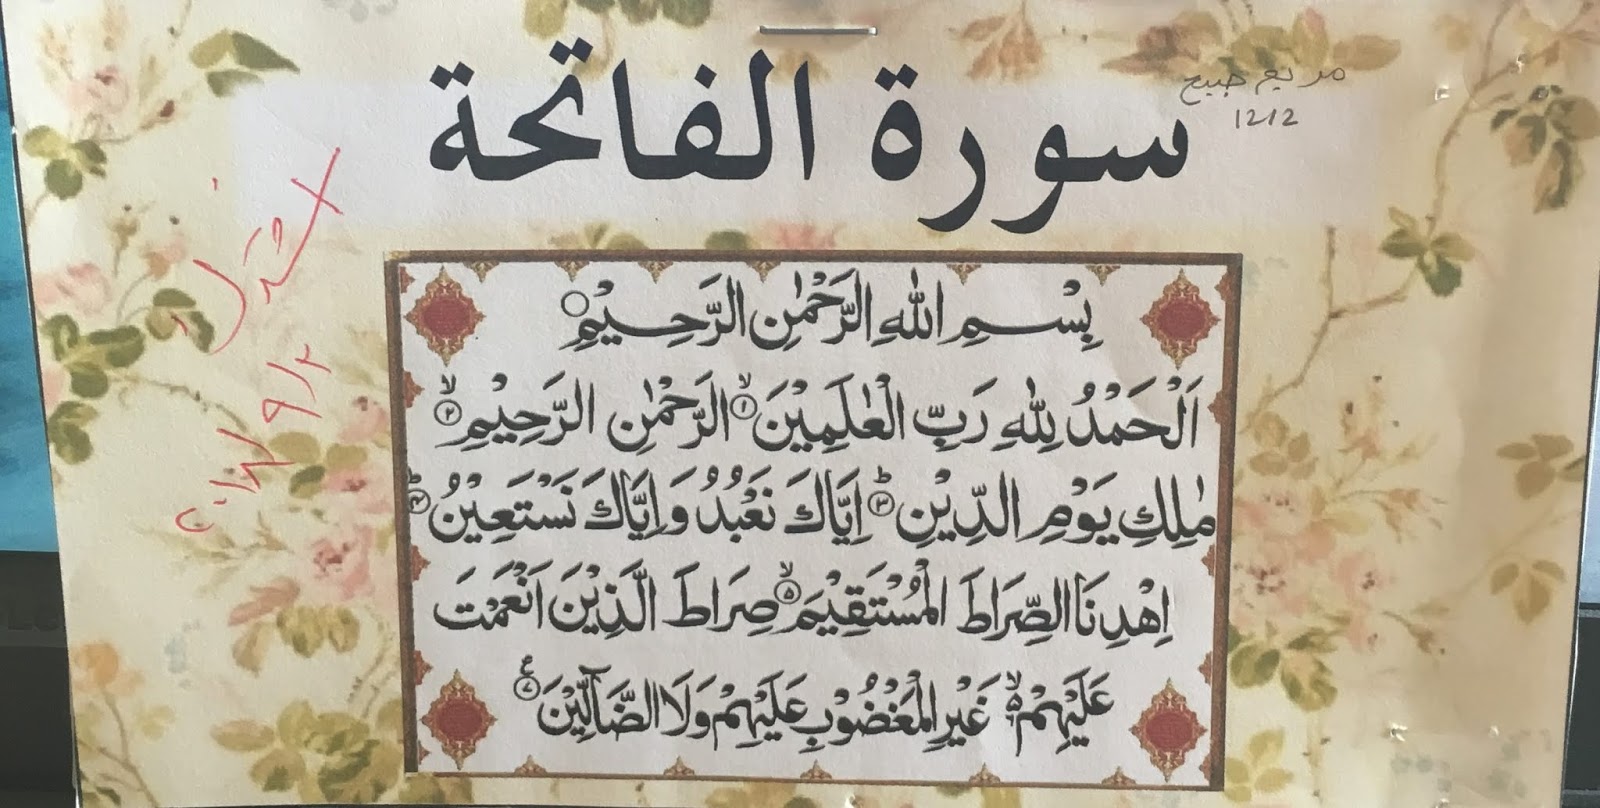 سورة الفاتحة
مریم صبیح
1212
بِسْمِ اللهِ الرَّحْمٰنِ الرَّحِيْمِ○
اَلْحَمْدُ لِلّٰهِ رَبِّ الْعٰلَمِيْنَ ۙ﴿۱﴾ الرَّحْمٰنِ الرَّحِيْمِ ۙ﴿۲﴾
مٰلِكِ يَوْمِ الدِّيْنِ ؕ﴿۳﴾ اِيَّاكَ نَعْبُدُ وَاِيَّاكَ نَسْتَعِيْنُ ؕ﴿۴﴾
اِهْدِنَا الصِّرَاطَ الْمُسْتَقِيْمَ ۙ﴿۵﴾ صِرَاطَ الَّذِيْنَ اَنْعَمْتَ
عَلَيْهِمْ ۙ۬﴿۶﴾ غَيْرِ الْمَغْضُوْبِ عَلَيْهِمْ وَلَا الضَّآلِّيْنَ ﴿۷﴾ ع